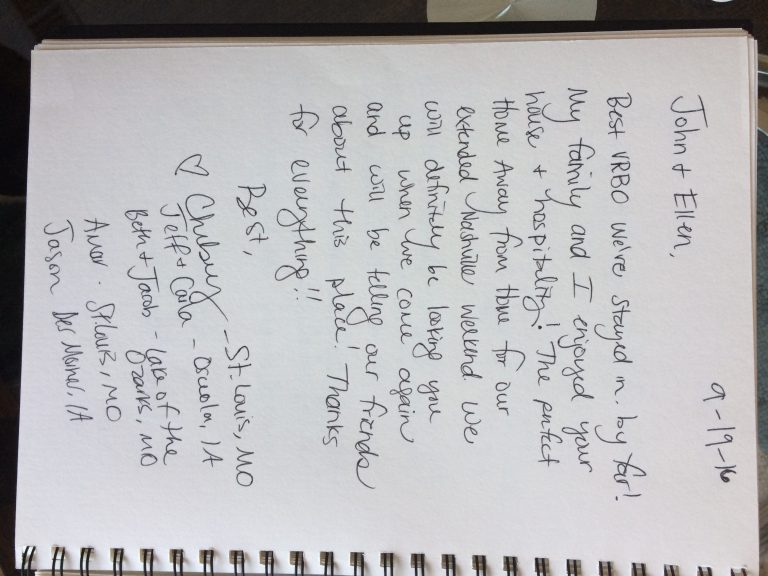 9-19-16
John + Ellen,
Best VRBO we've stayed in. by far!
My family and I enjoyed your
house + hospitality! The perfect
Home Away from Home for our
extended Nashville weekend. We
will definitely be looking you
up when we come again
and will be telling our friends
about this place! Thanks
for everything!!
Best,
♡ - St. Louis, MO
Jeff + Carla - Osceola, IA
Beth + Jacob - Lake of the
Ozarks, MO
St. Louis, MO
Jason Des Moines, IA